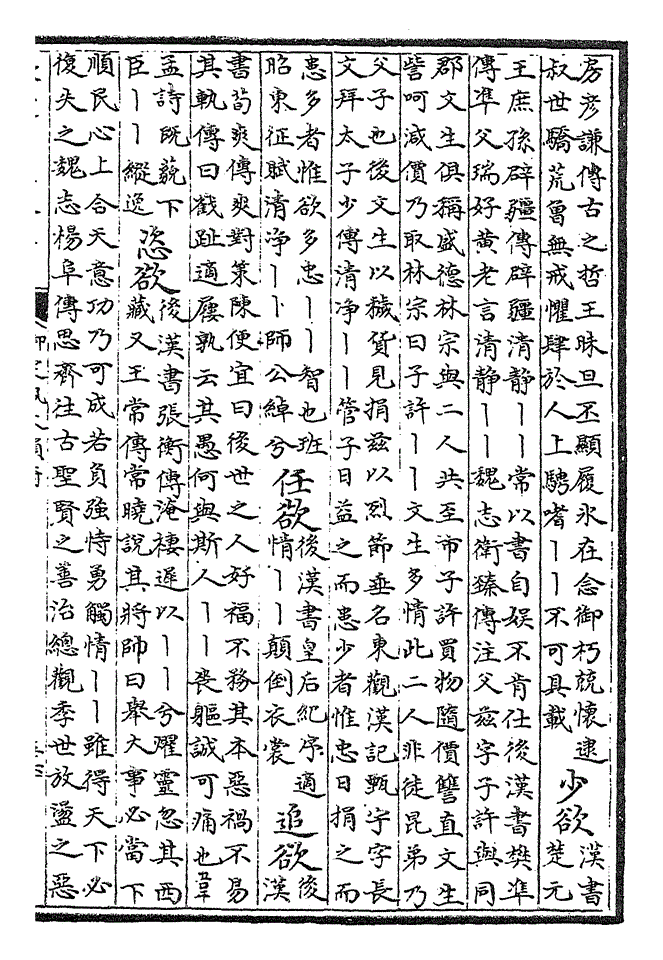 房彥謙傳古之哲王昧旦丕顯履氷在念御朽兢懷逮
叔世驕荒曾無戒懼肆於人上騁嗜丨丨不可具載
少欲
漢書
楚元
王庶孫辟疆傳辟疆清静丨丨常以書自娛不肯仕後漢書樊凖
傳凖父瑞好黄老言清静丨丨魏志衛臻傳注父茲字子許與同
郡文生俱稱盛德林宗與二人共至市子許買物隨價讐直文生
訾呵減價乃取林宗曰子許丨丨文生多情此二人非徒昆弟乃
父子也後文生以穢貨見捐茲以烈節垂名東觀漢記甄宇字長
文拜太子少傅清净丨丨管子日益之而患少者惟忠日捐之而
患多者惟欲多忠丨丨智也班
昭東征賦清净丨丨師公綽兮
任欲
後漢書皇后紀序適
情丨丨顛倒衣裳
追欲
後
漢
書荀爽傳爽對策陳便宜曰後世之人好福不務其本惡禍不易
其軌傳曰截趾適屨孰云其愚何與斯人丨丨喪軀誠可痛也韋
孟詩既藐下
臣丨丨縱逸
恣欲
後漢書張衡傳淹棲遲以丨丨兮燿靈忽其西
藏又王常傳常曉說其將帥曰舉大事必當下
順民心上合天意功乃可成若負強恃勇觸情丨丨雖得天下必
復失之魏志楊阜傳思齊往古聖賢之善治總觀季世放盪之惡